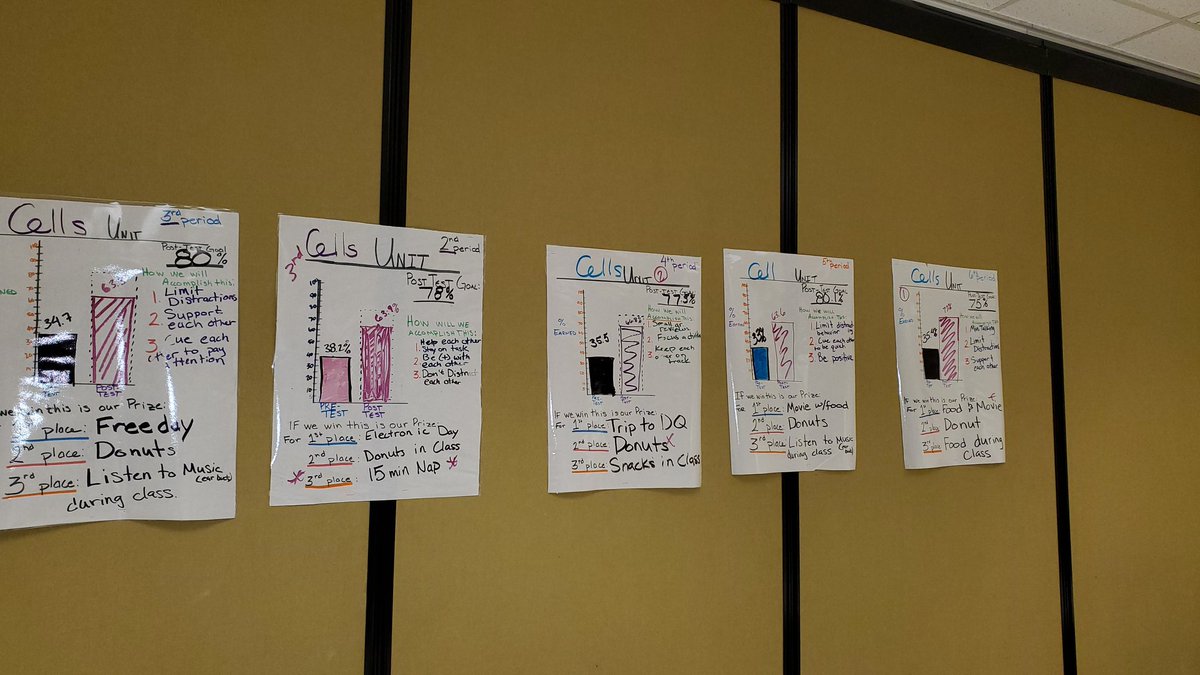 Cells UNIT
3rd period
Post-Test Goal
80%
34.7
How we will
Accomplish this:
1. Limit
Distractions
2. Support
each other
3. cue each
to pay
attention
TEST
POST
TEST
we win this is our Prize:
place: Free day
2nd place: Donuts
3rd place: Listen to Music
(ear buds)
during class.
3rd Cells UNIT
2nd period
POST TEST GOAL:
78%
38.2%
HOW WILL WE
ACCOMPLISH THIS:
1. Help each other
stay on task
2. Be (+) with
each other
3. Don't Distract
each other
PRE
TEST
POST
TEST
IF we win this is our Prize
For 1st place: Electronic Day
2nd place: Donuts in Class
3rd place: 15 min Nap
Cells UNIT 2
4th period
POST TEST GOAL:
77.5%
% EARNED
35.5
How will we
Accomplish this:
3. Keep each
on
track
If we win this is our Prize:
For 1st place: Trip to DQ
2nd place: Donuts
3rd place: Snacks in Class
Cell UNIT
5th period
POST-TEST GOAL:
% EARNED
1. Limit
behavior
2. Cue each other
to be quiet
3. Be positive
If we win this is our Prize
For 1st place: Movie w/food
2nd place: Donuts
3rd place: Listen to Music
during class
1 Cells UNIT
6th period
75%
% EARNED
2. Limit
Distractions
3. Support
each other
If we win this is our Prize
For 1st place: Food & Movie
2nd place: Donut
3rd place: Food during
Class